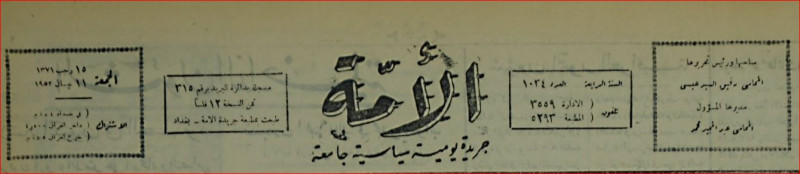 صاحبها ورئيس تحريرها
المحامي رفيق السيد عيسى
مديرها المسؤول
المحامي عبد المجيد محمد
السنة الرابعة العدد ١٠٣٤
تلفون
الادارة ٣٥٥٩
المطبعة ٥٢٩٣
الأمة
جريدة يومية سياسية جامعة
مسجلة بدائرة البريد برقم ٣١٥
ثمن النسخة ١٢ فلساً
طبعت بمطبعة جريدة الامة - بغداد
الجمعة
١٥ رجب ١٣٧١
١١ نيسان ١٩٥٢
الاشتراك
في بغداد
داخل العراق
خارج العراق